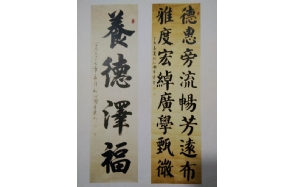 德惠旁流暢芳遠布
雅度宏綽廣學甄微
養德澤福